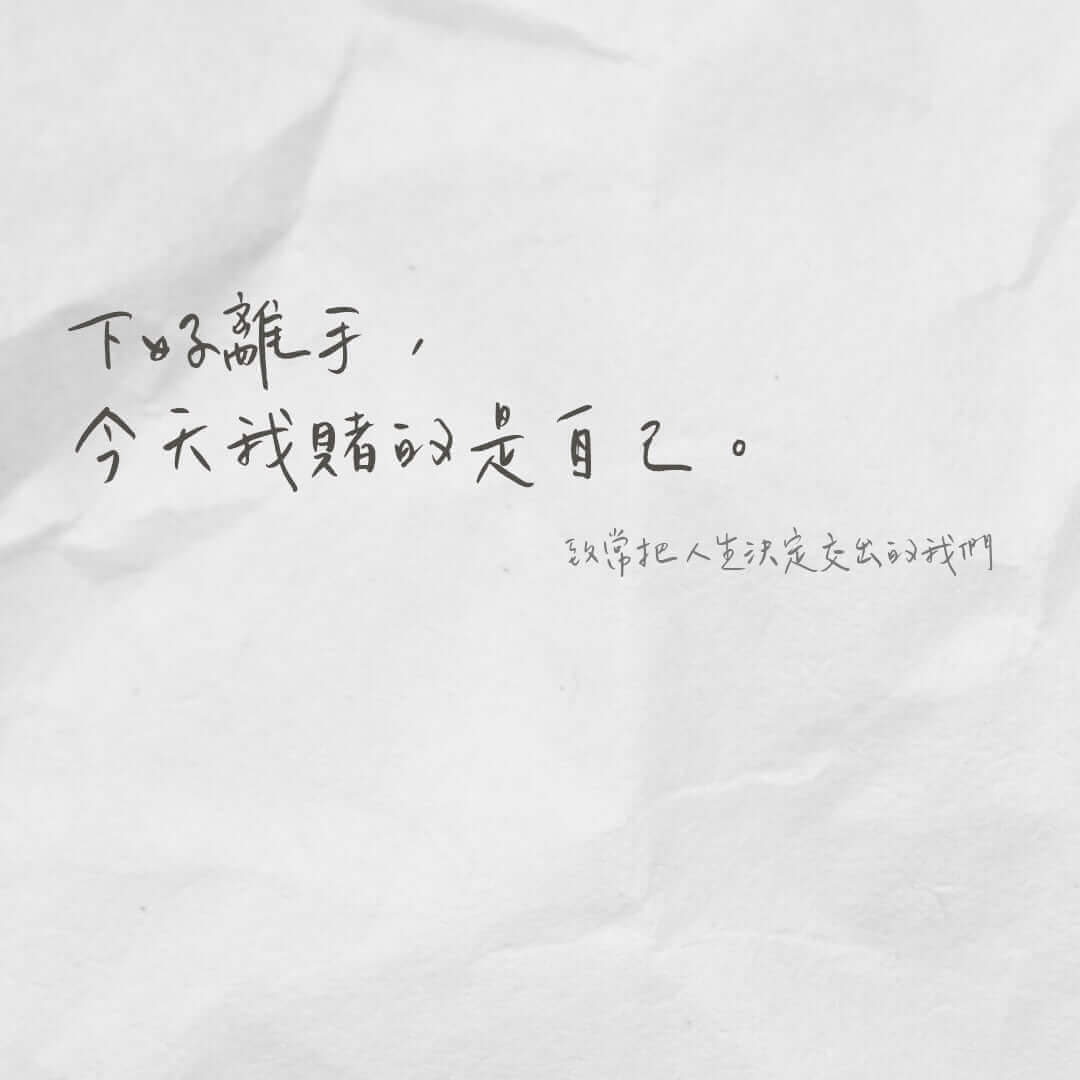 下好離手，
今天我賭的是自己。
致常把人生決定交出的我們